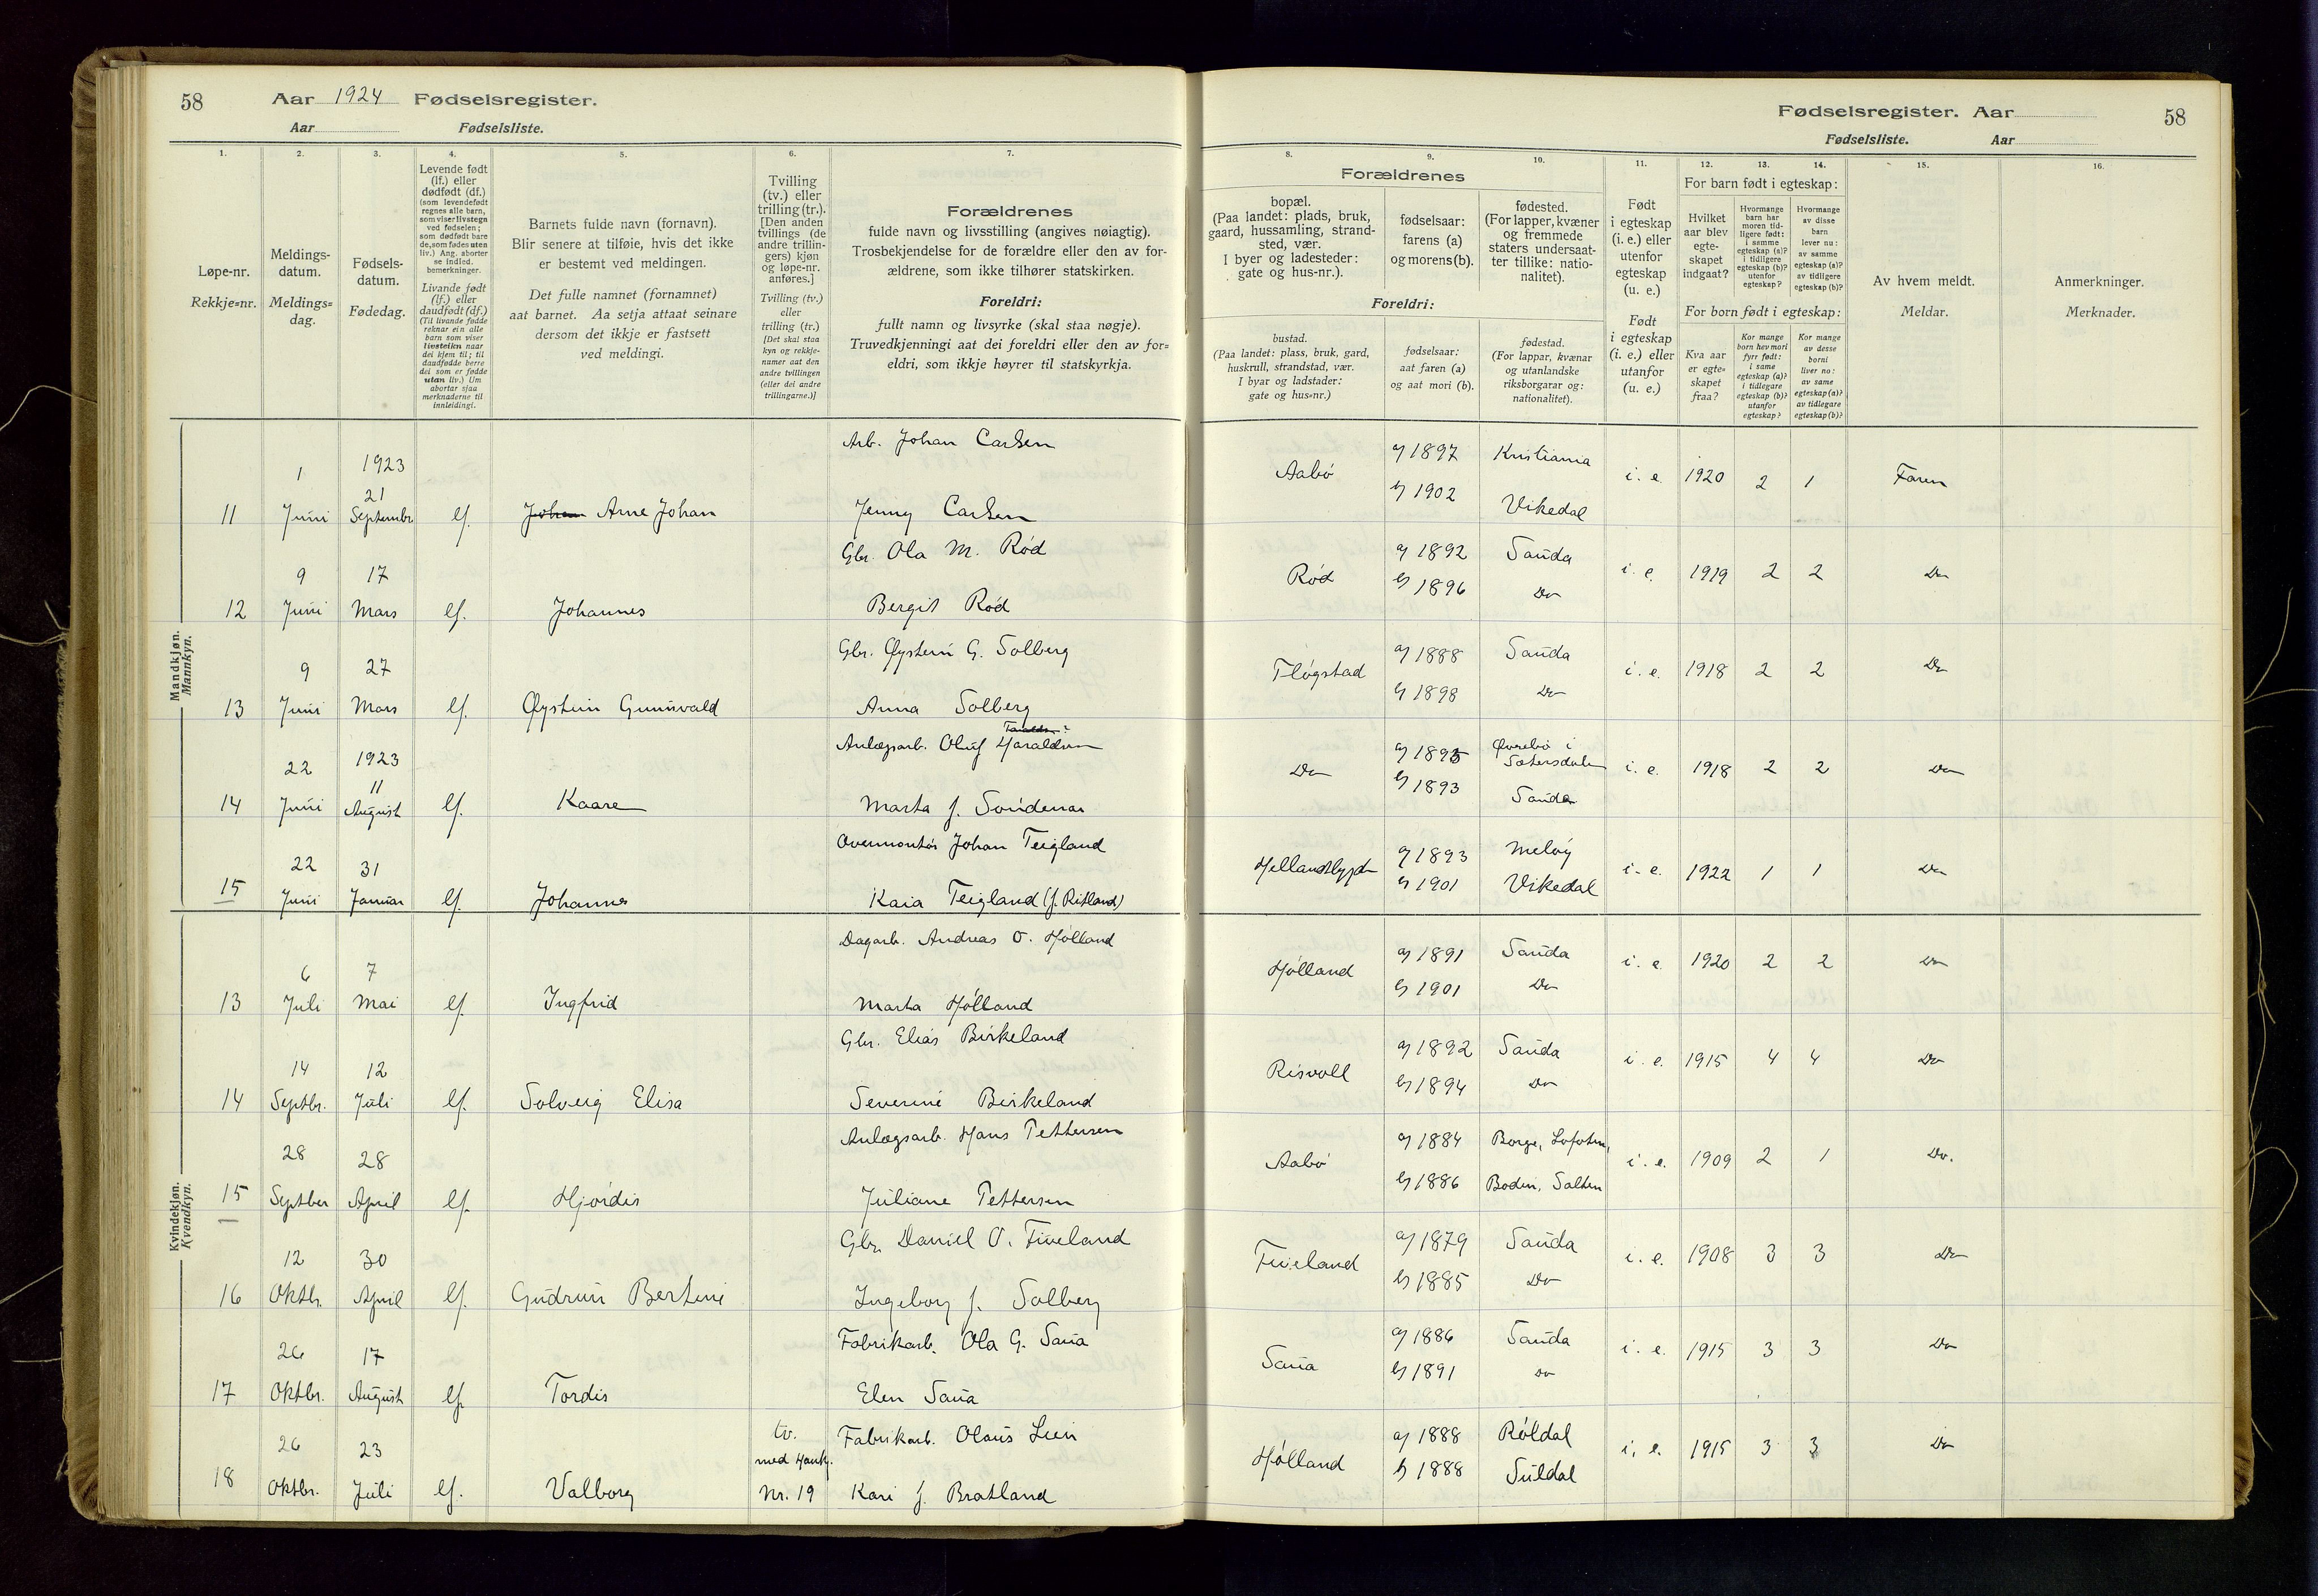 58 Aar 1924 Fødselsregister.
Aar Fødselsliste.
Fødselsregister. Aar 58
Fødselsliste. Aar
1. 2. 3. 4. 5. 6. 7. 8. 9. 10. 11. 12. 13. 14. 15. 16.
Løpe-nr.
Rekkje-nr.
Meldings-
datum.
Meldings-
dag.
Fødsels-
datum.
Fødedag.
Levende født
(lf.) eller
dødfødt (df.)
(som levendefødt
regnes alle barn,
som viser livstegn
ved fødselen;
som dødfødt bare
de, som fødes uten
liv.) Ang. aborter
se indled.
bemerkninger.
Livande født
(lf.) eller
daudfødt (df.)
(Til livande fødde
reknar ein alle
barn som viser
livsteikn naar
dei kjem til; til
daudfødde berre
dei som er fødde
utan liv.) Um
abortar sjaa
merknaderne til
innleidingi.
Barnets fulde navn (fornavn).
Blir senere at tilføie, hvis det ikke
er bestemt ved meldingen.
Det fulle namnet (fornamnet)
aat barnet. Aa setja attaat seinare
dersom det ikkje er fastsett
ved meldingi.
Tvilling
(tv.) eller
trilling (tr.).
[Den anden
tvillings (de
andre trillin-
gers) kjøn
og løpe-nr.
anføres.]
Tvilling (tv.)
eller
trilling (tr.)
[Det skal staa
kyn og rekkje-
numer aat den
andre tvillingen
(eller dei andre
trillingarne.)]
Forældrenes
fulde navn og livsstilling (angives nøiagtig).
Trosbekjendelse for de forældre eller den av for-
ældrene, som ikke tilhører statskirken.
Foreldri:
fullt namn og livsyrke (skal staa nøgje).
Truvedkjenningi aat dei foreldri eller den av for-
eldri, som ikkje høyrer til statskyrkja.
Forældrenes
bopæl.
(Paa landet: plads, bruk,
gaard, hussamling, strand-
sted, vær.
I byer og ladesteder:
gate og hus-nr.).
fødselsaar:
farens (a)
og morens (b).
fødested.
(For lapper, kvæner
og fremmede
staters undersaat-
ter tillike: natio-
nalitet).
Foreldri:
bustad.
(Paa landet: plass, bruk, gard,
huskrull, strandstad, vær.
I byar og ladstader:
gate og hus-nr.)
fødselsaar:
aat faren (a)
og aat mori (b).
fødestad.
(For lappar, kvænar
og utanlandske
riksborgarar og:
nationalitet).
Født
i egteskap
(i. e.) eller
utenfor
egteskap
(u. e.)
Født
i egteskap
(i. e.) eller
utanfor
(u. e.)
For barn født i egteskap:
Hvilket
aar blev
egte-
skapet
indgaat?
Hvormange
barn har
moren tid-
ligere født:
i samme
egteskap (a)?
i tidligere
egteskap (b)?
utenfor
egteskap?
Hvormange
av disse
barn
lever nu:
av samme
egteskap (a)?
av tidligere
egteskap (b)?
For born født i egteskap:
Kva aar
er egte-
skapet
fraa?
Kor mange
born hev mori
fyrr født:
i same
egteskap (a)?
i tidlegare
egteskap (b)?
utanfor
egteskap?
Kor mange
av desse
borni
liver no:
av same
egteskap (a)?
av tidlegare
egteskap (b)?
Av hvem meldt.
Meldar.
Anmerkninger.
Merknader.
Mandkjøn.
Mannkyn.
11 1 Juni 1923 21 Septembr. lf. Johan Arne Johan Arb. Johan Carlsen
Jenny Carlsen
Aabø a) 1897 Kristiania i. e. 1920 2 1 Faren
b) 1902 Vikedal
12 9 Juni 17 Mars lf. Johannes Gbr. Ola M. Rød
Bergit Rød
Rød a) 1892 Sauda i. e. 1919 2 2 Do
b) 1896 Do
13 9 Juni 27 Mars lf. Øystein Gunnvald Gbr. Øystein G. Solberg
Anna Solberg
Fløgstad a) 1888 Sauda i. e. 1918 2 2 Do
b) 1898 Do
14 22 Juni 1923 11 August lf. Kaare Anlægsarb. Oluf Haraldsen
Marta f. Søndenaa
Do a) 1895 Øvrebø i Sætersdalen i. e. 1918 2 2 Do
b) 1893 Sauda
15 22 Juni 31 Januar lf. Johannes Overmontør Johan Teigland
Kaia Teigland (f. Risland)
Hellandsbygd a) 1893 Meløy i. e. 1922 1 1 Do
b) 1901 Vikedal
Kvindekjøn.
Kvendkyn.
13 6 Juli 7 Mai lf. Ingfrid Dagarb. Andreas O. Hølland
Marta Hølland
Hølland a) 1891 Sauda i. e. 1920 2 2 Do
b) 1901 Do
14 14 Septbr. 12 Juli lf. Solveig Elisa Gbr. Elias Birkeland
Severine Birkeland
Risvoll a) 1892 Sauda i. e. 1915 4 4 Do
b) 1894 Do
15 28 Septber 28 April lf. Hjørdis Anlægsarb. Hans Pettersen
Juliane Pettersen
Aabø a) 1884 Borge, Lofoten, i. e. 1909 2 1 Do.
b) 1886 Bodin, Salten
16 12 Oktbr. 30 April lf. Gudrun Bertine Gbr. Daniel O. Fiveland
Ingeborg f. Solberg
Fiveland a) 1879 Sauda i. e. 1908 3 3 Do
b) 1885 Do
17 26 Oktbr. 17 August lf. Tordis Fabrikarb. Ola G. Saua
Elen Saua
Saua a) 1886 Sauda i. e. 1915 3 3 Do
b) 1891 Do
18 26 Oktbr. 23 Juli lf. Valborg tv. med Hank. Nr. 19 Fabrikarb. Olaus Lien
Kari f. Bratland
Hølland a) 1888 Røldal i. e. 1915 3 3 Do
b) 1888 Suldal